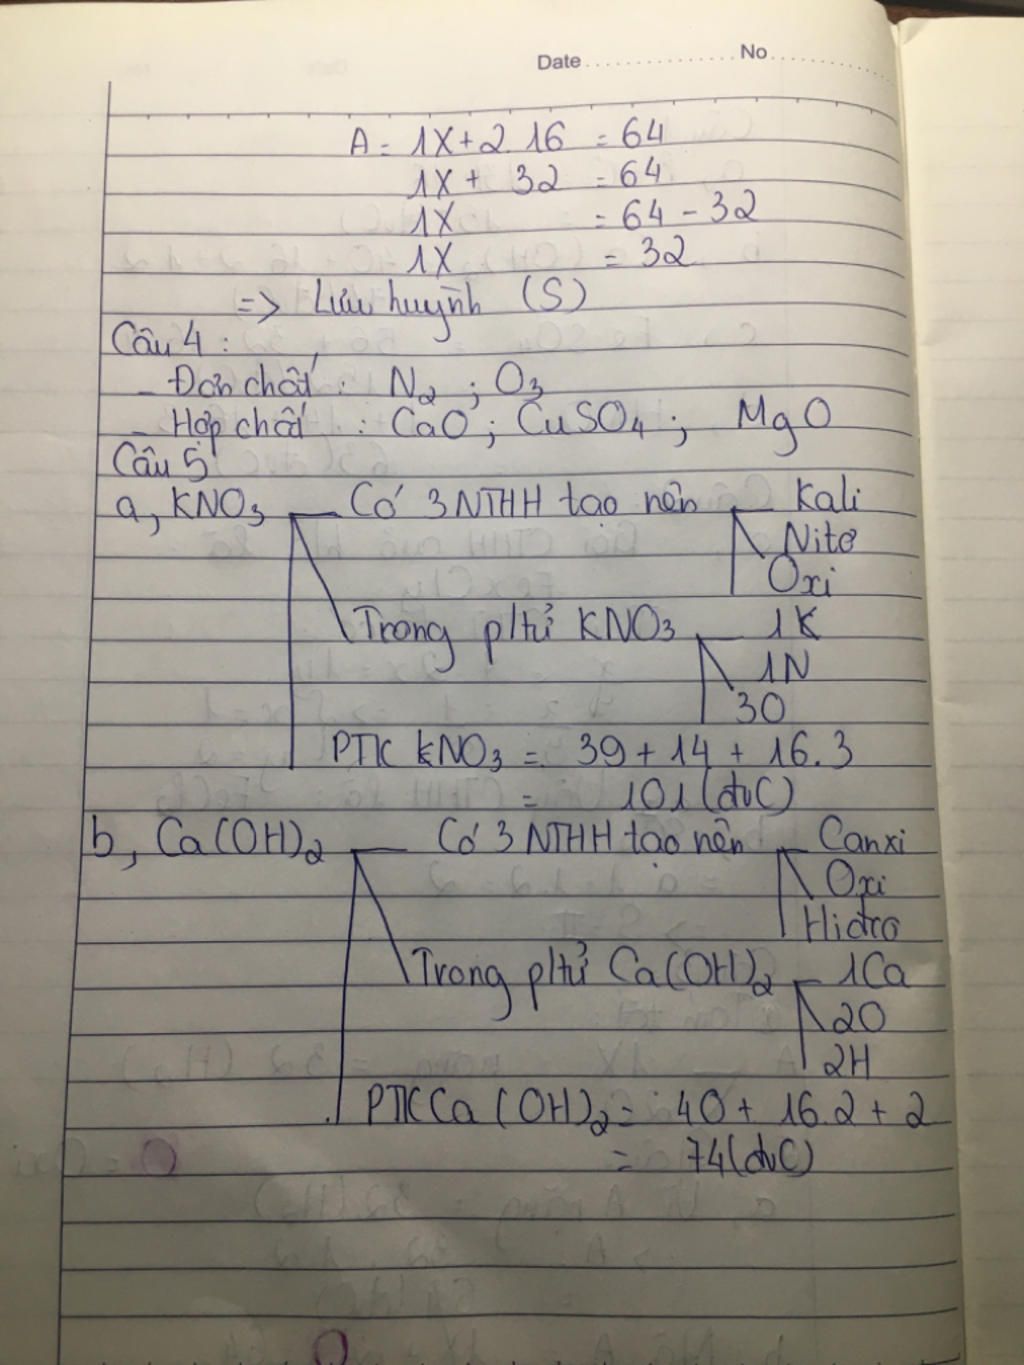 Date No
A = 1X + 2.16 = 64
1X + 32 = 64
1X = 64 - 32
1X = 32
=> Lưu huỳnh (S)
Câu 4 :
- Đơn chất : N₂ ; O₃
- Hợp chất : CaO ; CuSO₄ ; MgO
Câu 5
a, KNO₃ Có 3 NTHH tạo nên Kali
Nitơ
Oxi
Trong p/tử KNO₃ 1K
1N
3O
PTK KNO₃ = 39 + 14 + 16.3
= 101 (đvC)
b, Ca(OH)₂ Có 3 NTHH tạo nên Canxi
Oxi
Hidro
Trong p/tử Ca(OH)₂ 1Ca
2O
2H
PTK Ca(OH)₂ = 40 + 16.2 + 2
= 74 (đvC)